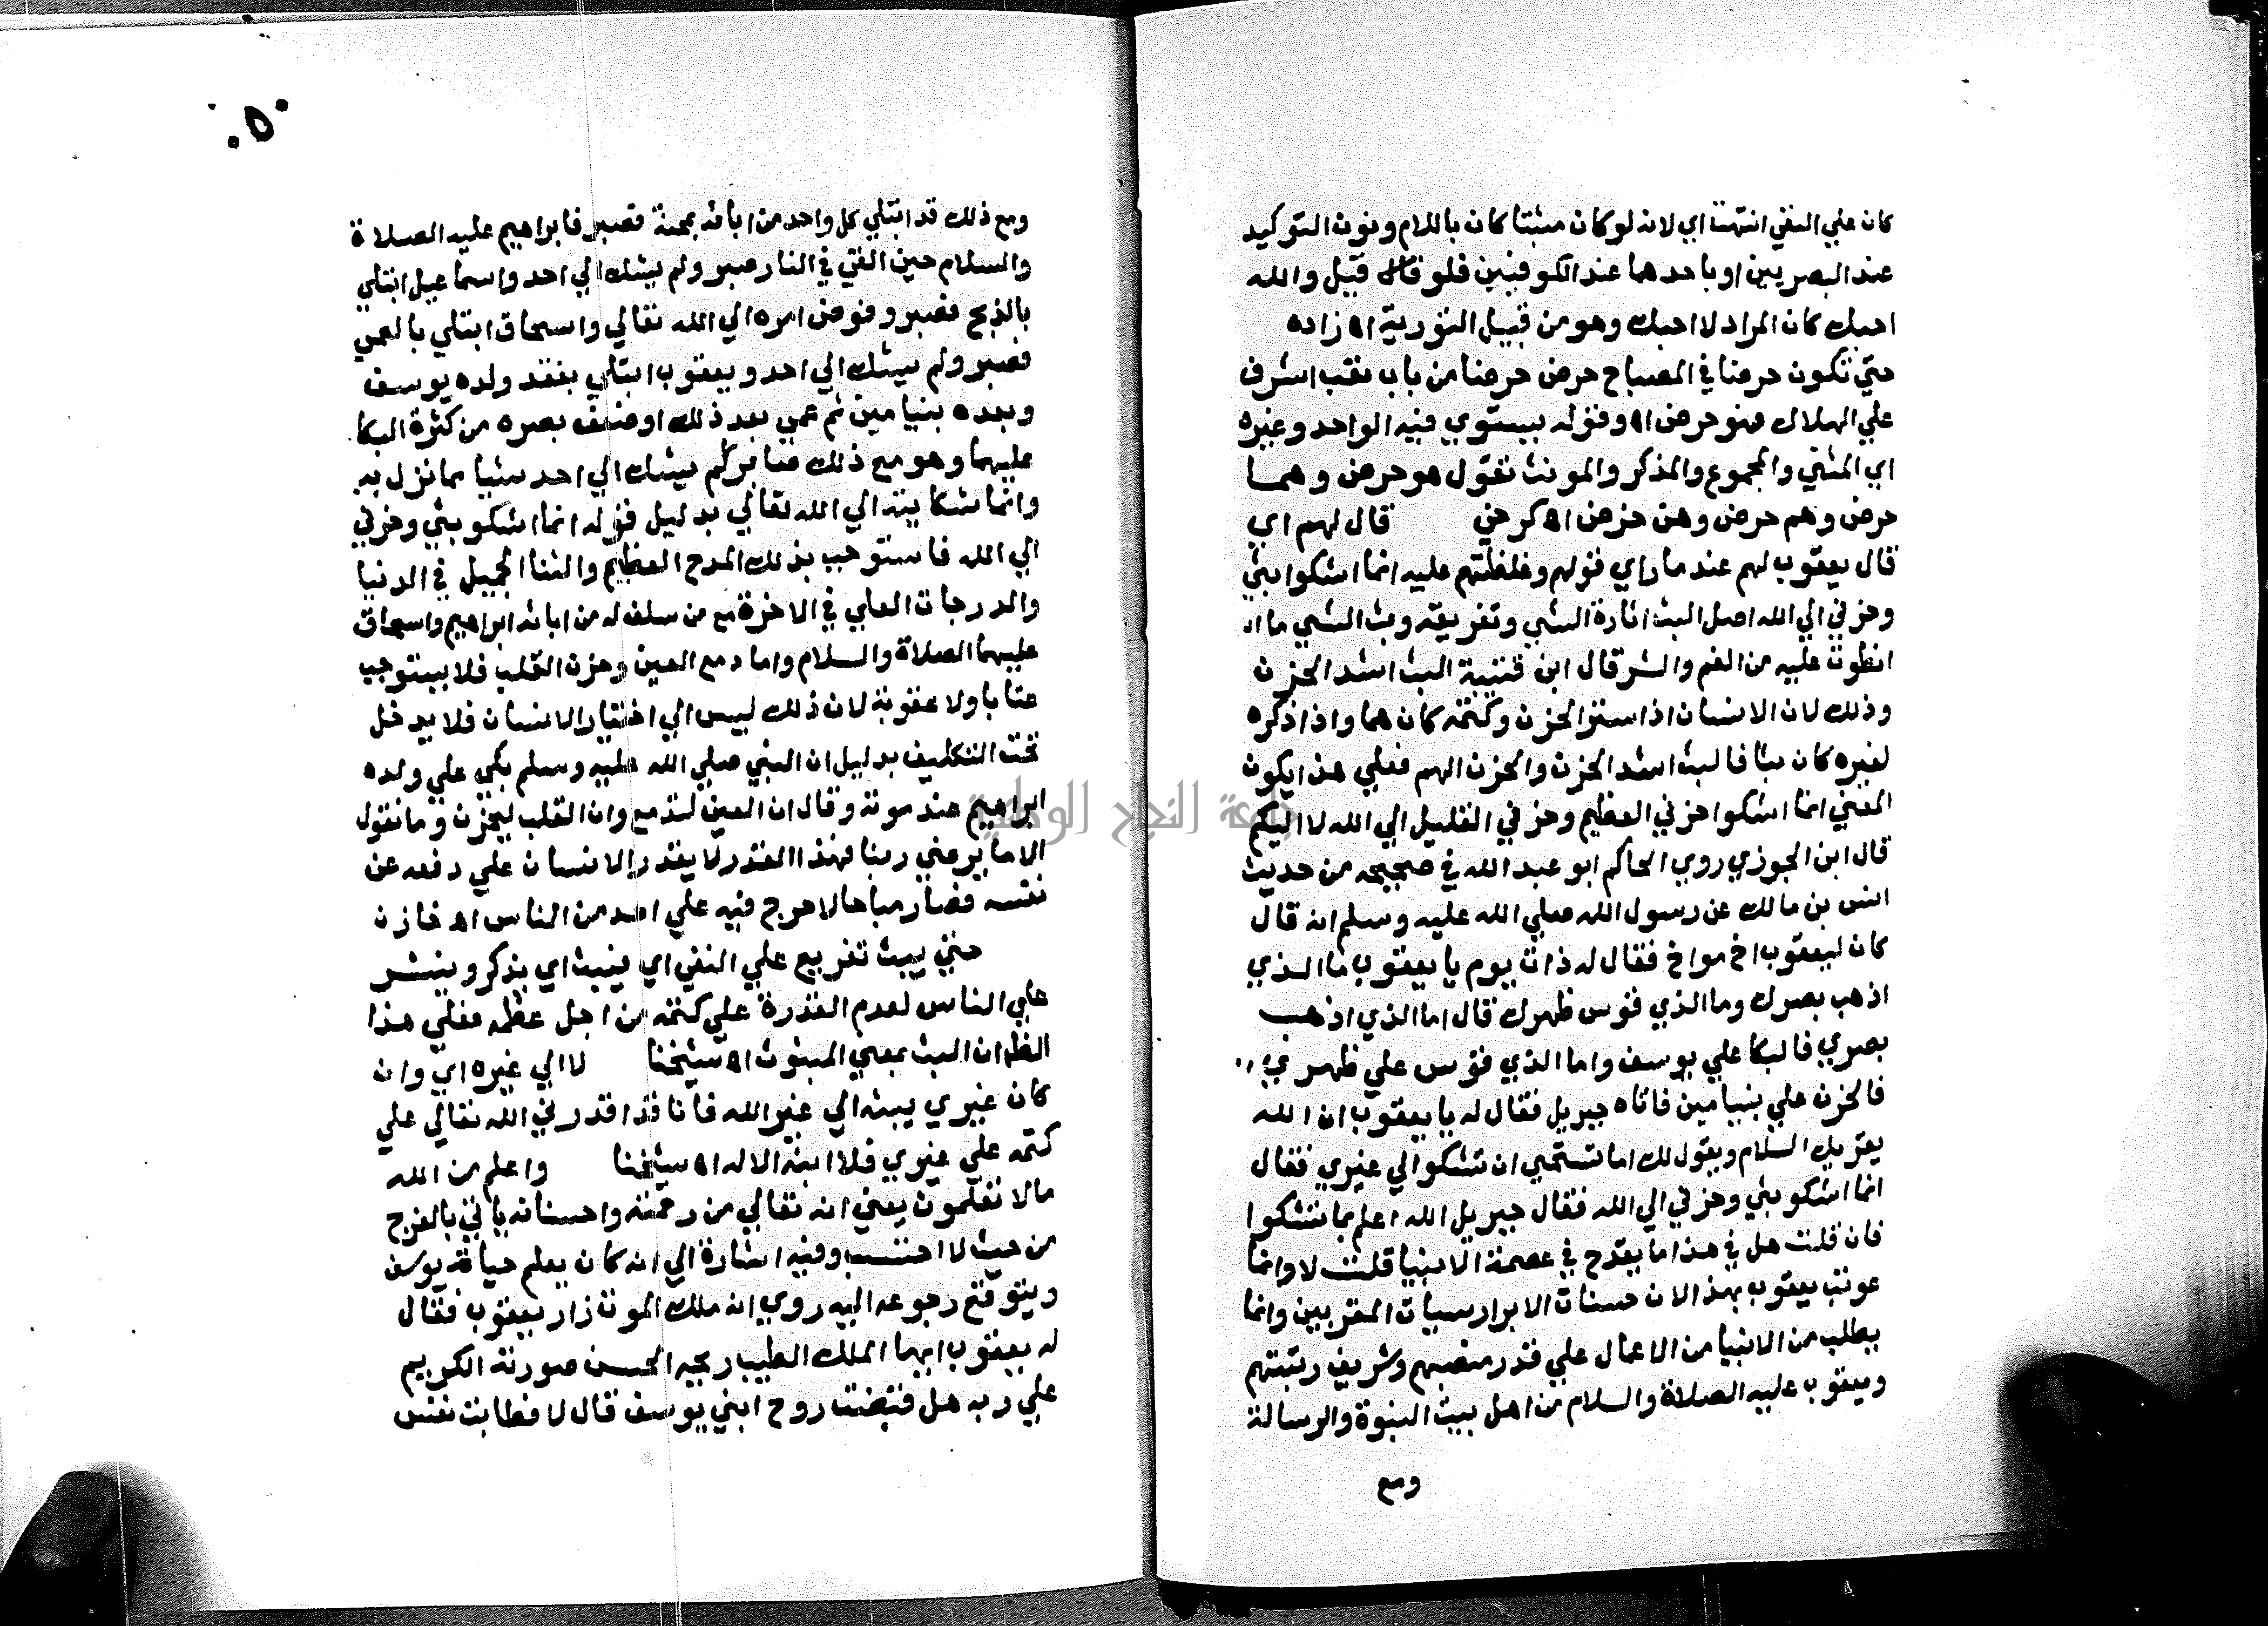 كان علي النفي انتهت اي لانه لو كان مثبتا كان باللام ونون التوكيد
عند البصريين او باحدهما عند الكوفيين فلو قال قيل والله
احبك كان المراد لا احبك وهو من قبيل التورية اه زاده
حتي تكون حرضا في المصباح حرض حرضا من باب تعب اشرف
علي الهلاك فهو حرض اه وقوله يستوي فيه الواحد وغيره
اي المثني والمجموع والمذكر والمونث تقول هو حرض وهما
حرض وهم حرض وهن حرض اه كرخي قال لهم اي
قال يعقوب لهم عند ما راي قولهم وغلظتهم عليه انما اشكوا بثي
وحزني الي الله اصل البث اثارة الشي وتفريقه وبث الشي ما
انطوت عليه من الغم والشر قال ابن قتيبة البث اشد الحزن
وذلك لان الانسان اذا ستر الحزن وكتمه كان هما واذا ذكره
لغيره كان بثا فالبث اشد الحزن والحزن الهم فعلي هذا يكون
المعني انما اشكوا حزني العظيم وحزني القليل الي الله لا اليكم
قال ابن الجوزي روي الحاكم ابو عبد الله في صحيحه من حديث
انس بن مالك عن رسول الله صلي الله عليه وسلم انه قال
كان ليعقوب اخ مواخ فقال له ذات يوم يا يعقوب ما الذي
اذهب بصرك وما الذي قوس ظهرك قال اما الذي اذهب
بصري فالبكا علي يوسف واما الذي قوس علي ظهري
فالحزن علي بنيامين فاتاه جبريل فقال له يا يعقوب ان الله
يقريك السلام ويقول لك اما تستحيي ان تشكو الي غيري فقال
انما اشكو بثي وحزني الي الله فقال جبريل الله اعلم بما تشكوا
فان قلت هل في هذا ما يقدح في عصمة الانبيا قلت لا وانما
عوتب يعقوب بهذا لان حسنات الابرار سيات المقربين وانما
يطلب من الانبيا من الاعمال علي قدر منصبهم وشريف رتبتهم
ويعقوب عليه الصلاة والسلام من اهل بيت النبوة والرسالة
ومع
٥٠
ومع ذلك قد ابتلي كل واحد من ابائه بمحنة فصبر فابراهيم عليه الصلاة
والسلام حين القي في النار صبر ولم يشك الي احد واسماعيل ابتلي
بالذبح فصبر وفوض امره الي الله تعالي واسحاق ابتلي بالعمي
فصبر ولم يشك الي احد ويعقوب ابتلي بفقد ولده يوسف
وبعده بنيامين ثم عمي بعد ذلك او ضعف بصره من كثرة البكا
عليهما وهو مع ذلك صابر لم يشك الي احد شيا مما نزل به
وانما شكايته الي الله تعالي بدليل قوله انما اشكو بثي وحزني
الي الله فاستوجب بذلك المدح العظيم والثنا الجميل في الدنيا
والدرجات العلي في الاخرة مع من سلف له من ابائه ابراهيم واسحاق
عليهما الصلاة والسلام واما دمع العين وحزن القلب فلا يستوجب
عتابا ولا عقوبة لان ذلك ليس الي اختيار الانسان فلا يدخل
تحت التكليف بدليل ان النبي صلي الله عليه وسلم بكي علي ولده
ابراهيم عند موته وقال ان العين لتدمع وان القلب ليحزن وما نقول
الا ما يرضي ربنا فهذا القدر لا يقدر الانسان علي دفعه عن
نفسه فصار مباحا لا حرج فيه علي احد من الناس اه خازن
حتي يبث تفريع علي النفي اي فيبث اي يذكر وينشر
علي الناس لعدم القدرة علي كتمه من اجل عظمه فعلي هذا
الظ ان البث بمعني المبثوث اه شيخنا لا الي غيره اي وان
كان غيري يبثه الي غير الله فانا قد اقدرني الله تعالي علي
كتمه علي غيري فلا ابثه الا له اه شيخنا واعلم من الله
ما لا تعلمون يعني انه تعالي من رحمته واحسانه ياتي بالفرج
من حيث لا احتسب وفيه اشارة الي انه كان يعلم حياة يوسف
ويتوقع رجوعه اليه روي ان ملك الموت زار يعقوب فقال
له يعقوب ايها الملك الطيب ريحه الحسن صورته الكريم
علي ربه هل قبضت روح ابني يوسف قال لا فطابت نفس
جامعة النجاح الوطنية